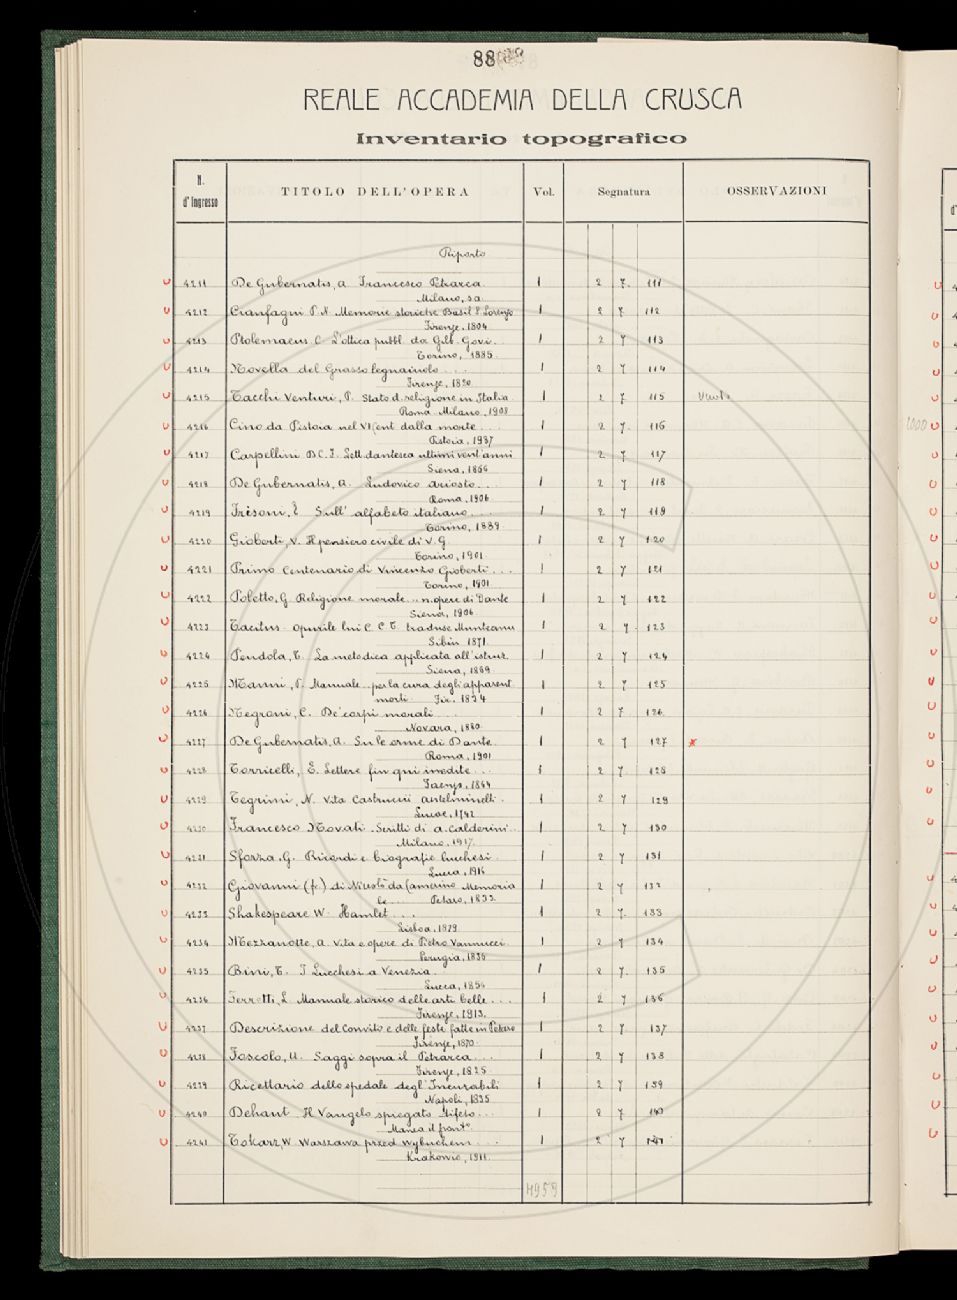 88
REALE ACCADEMIA DELLA CRUSCA
Inventario topografico
N. d'Ingresso TITOLO DELL'OPERA Vol. Segnatura OSSERVAZIONI
Riporto
4211 De Gubernatis, A. Francesco Petrarca 1 2 7. 111
Milano, s.a.
4212 Cianfagni P. N. Memorie storiche Basil S. Lorenzo 1 2 7. 112
Firenze, 1804
4213 Ptolemaeus C. L'ottica pubbl. da Gilb. Govi. 1 2 7 113
Torino, 1885
4214 Novella del Grasso legnaiuolo ... 1 2 7 114
Firenze, 1820
4215 Tacchi Venturi, P. Stato d. religione in Italia 1 2 7. 115
Roma Milano, 1908
4216 Cino da Pistoia nel VI Cent dalla morte ... 1 2 7. 116
Pistoia, 1937
4217 Carpellini D.C.F. Lett. dantesca ultimi vent'anni 1 2 7 117
Siena, 1866
4218 De Gubernatis, A. Ludovico Ariosto ... 1 2 7 118
Roma, 1906
4219 Frisoni, E. Sull'alfabeto italiano ... 1 2 7 119
Torino, 1889
4220 Gioberti, V. Il pensiero civile di V. G. 1 2 7 120
Torino, 1901
4221 Primo Centenario di Vincenzo Gioberti ... 1 2 7 121
Torino, 1901
4222 Poletto, G. Religione morale .. n. opere di Dante 1 2 7 122
Siena, 1906
4223 Tacitus opurile lui C. C. T. traduse Munteanu 1 2 7. 123
Sibin 1871
4224 Pendola, T. La metodica applicata all'istruz. 1 2 7 124
Siena, 1869
4225 Manni, P. Manuale per la cura degli apparent. 1 2 7 125
morti Fir. 1834
4226 Negroni, C. De' corpi morali ... 1 2 7 126
Novara, 1880
4227 De Gubernatis, A. Su le orme di Dante 1 2 7 127 *
Roma, 1901
4228 Torricelli, E. Lettere fin qui inedite ... 1 2 7. 128
Faenza, 1864
4229 Tegrimi, N. Vita Castruccii Antelminelli. 1 2 7 129
Lucae, 1742
4230 Francesco Novati. Scritti di A. Calderini.. 1 2 7 130
Milano, 1917
4231 Sforza, G. Ricordi e biografie lucchesi 1 2 7 131
Lucca, 1916
4232 Giovanni (fr.) di Niccolò da Camerino Memoria 1 2 7 132
le Pesaro, 1833
4233 Shakespeare W. Hamlet ... 1 2 7. 133
Lisboa, 1879
4234 Mezzanotte, A. Vita e opere di Pietro Vannucci. 1 2 7 134
Perugia, 1836
4235 Bini, T. I Lucchesi a Venezia. 1 2 7. 135
Lucca, 1854
4236 Ferretti, L. Manuale storico delle arti belle ... 1 2 7 136
Firenze, 1913.
4237 Descrizione del Convito e delle feste fatte in Pesaro 1 2 7 137
Firenze, 1870
4238 Foscolo, U. Saggi sopra il Petrarca ... 1 2 7 138
Firenze, 1825
4239 Ricettario dello spedale degl'Incurabili 1 2 7 139
Napoli, 1835
4240 Dehant Il Vangelo spiegato difeso ... 1 2 7. 140
Manca il front.º
4241 Tokarz, W. Warszawa przed wybuchem ... 1 2 7 141
Krakowie, 1911
4959